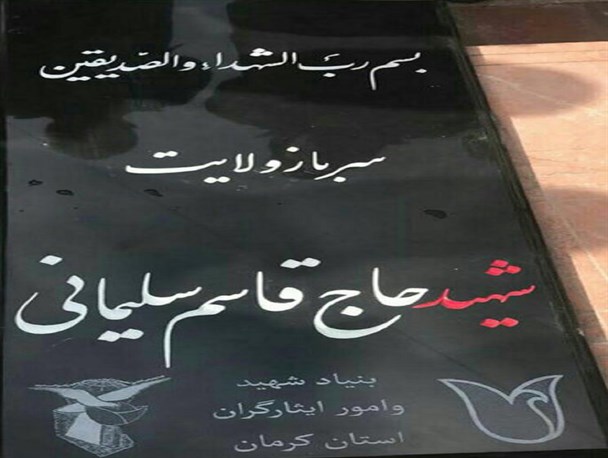 بسم ربّ الشهداء والصّدیقین
سرباز ولایت
شهید حاج قاسم سلیمانی
بنیاد شهید
وامور ایثارگران
استان کرمان